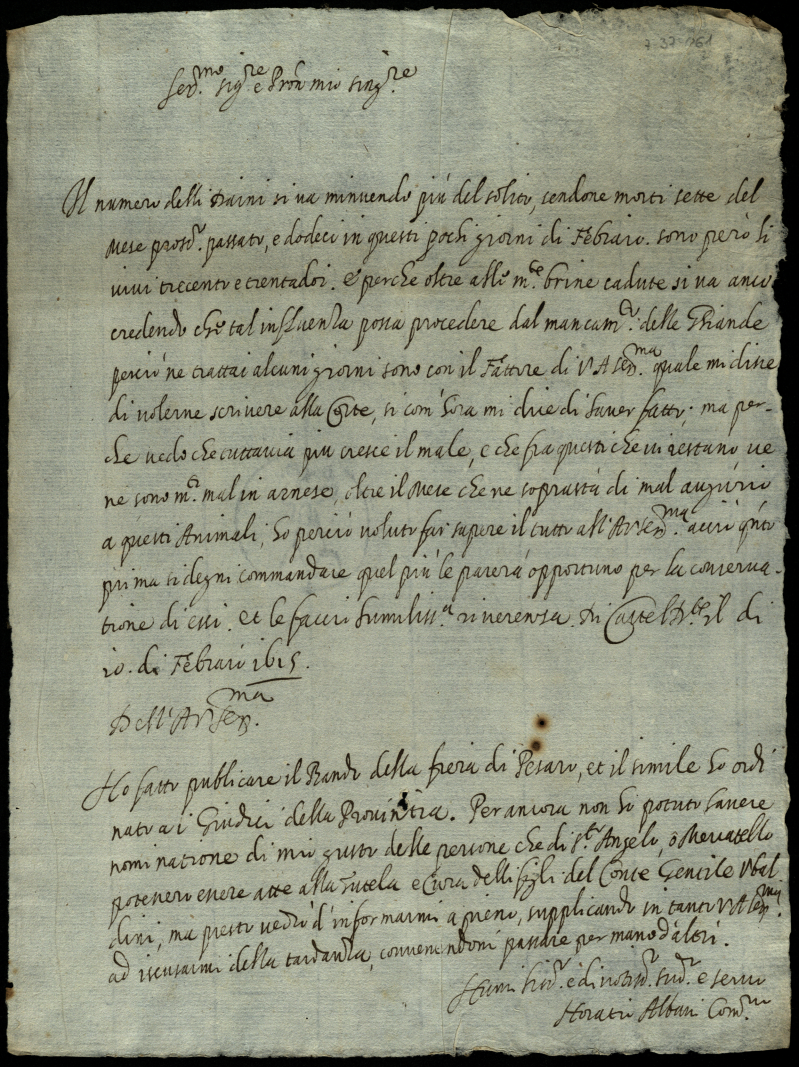 7-37-1761
Ser.mo sig.re e Pron mio sing.re
Il numero delli Daini si va minuendo più del solito, sendone morti sette del
Mese pross.o passato, e dodeci in questi pochi giorni di Febraro. sono però li
vivi trecento e trentadoi. e perche oltre alle m.te brine cadute si va anco
credendo che tal influenza possa procedere dal mancam.to delle Ghiande
perciò ne trattai alcuni giorni sono con il Fattore di V A Ser.ma quale mi disse
di volerne scrivere alla Corte, si com' hora mi dice di haver fatto; ma per-
che vedo che tuttavia più cresce il male, e che fra questi che vi restano ve
ne sono m.ti mal in arnese, oltre il Mese che ne soprastà di mal augurio
a questi Animali, ho perciò voluto far sapere il tutto all' A V Ser.ma acciò q'nto
prima si degni commandare quel più le parerà opportuno per la conserva-
tione di essi. et le faccio humiliss.a riverenza. Di Castel D.te il dì
10. di Febraro 1615.
Dell' A V Ser.ma
Ho fatto publicare il Bando della fiera di Pesaro, et il simile ho ordi
nato a i Giudici della Provintia. Per ancora non ho potuto havere
nominatione di mio gusto delle persone che di S.to Angelo, o Mercatello
potessero essere atte alla Tutela e Cura delli figli del Conte Gentile Ubal
dini, ma presto vedrò d'informarmi a pieno, supplicando in tanto V A Ser.ma
ad iscusarmi della tardanza, convenendomi passare per mano d'altri.
Humiliss.o e divotiss.o sud.o e serv.re
Horatio Albani Com.rio